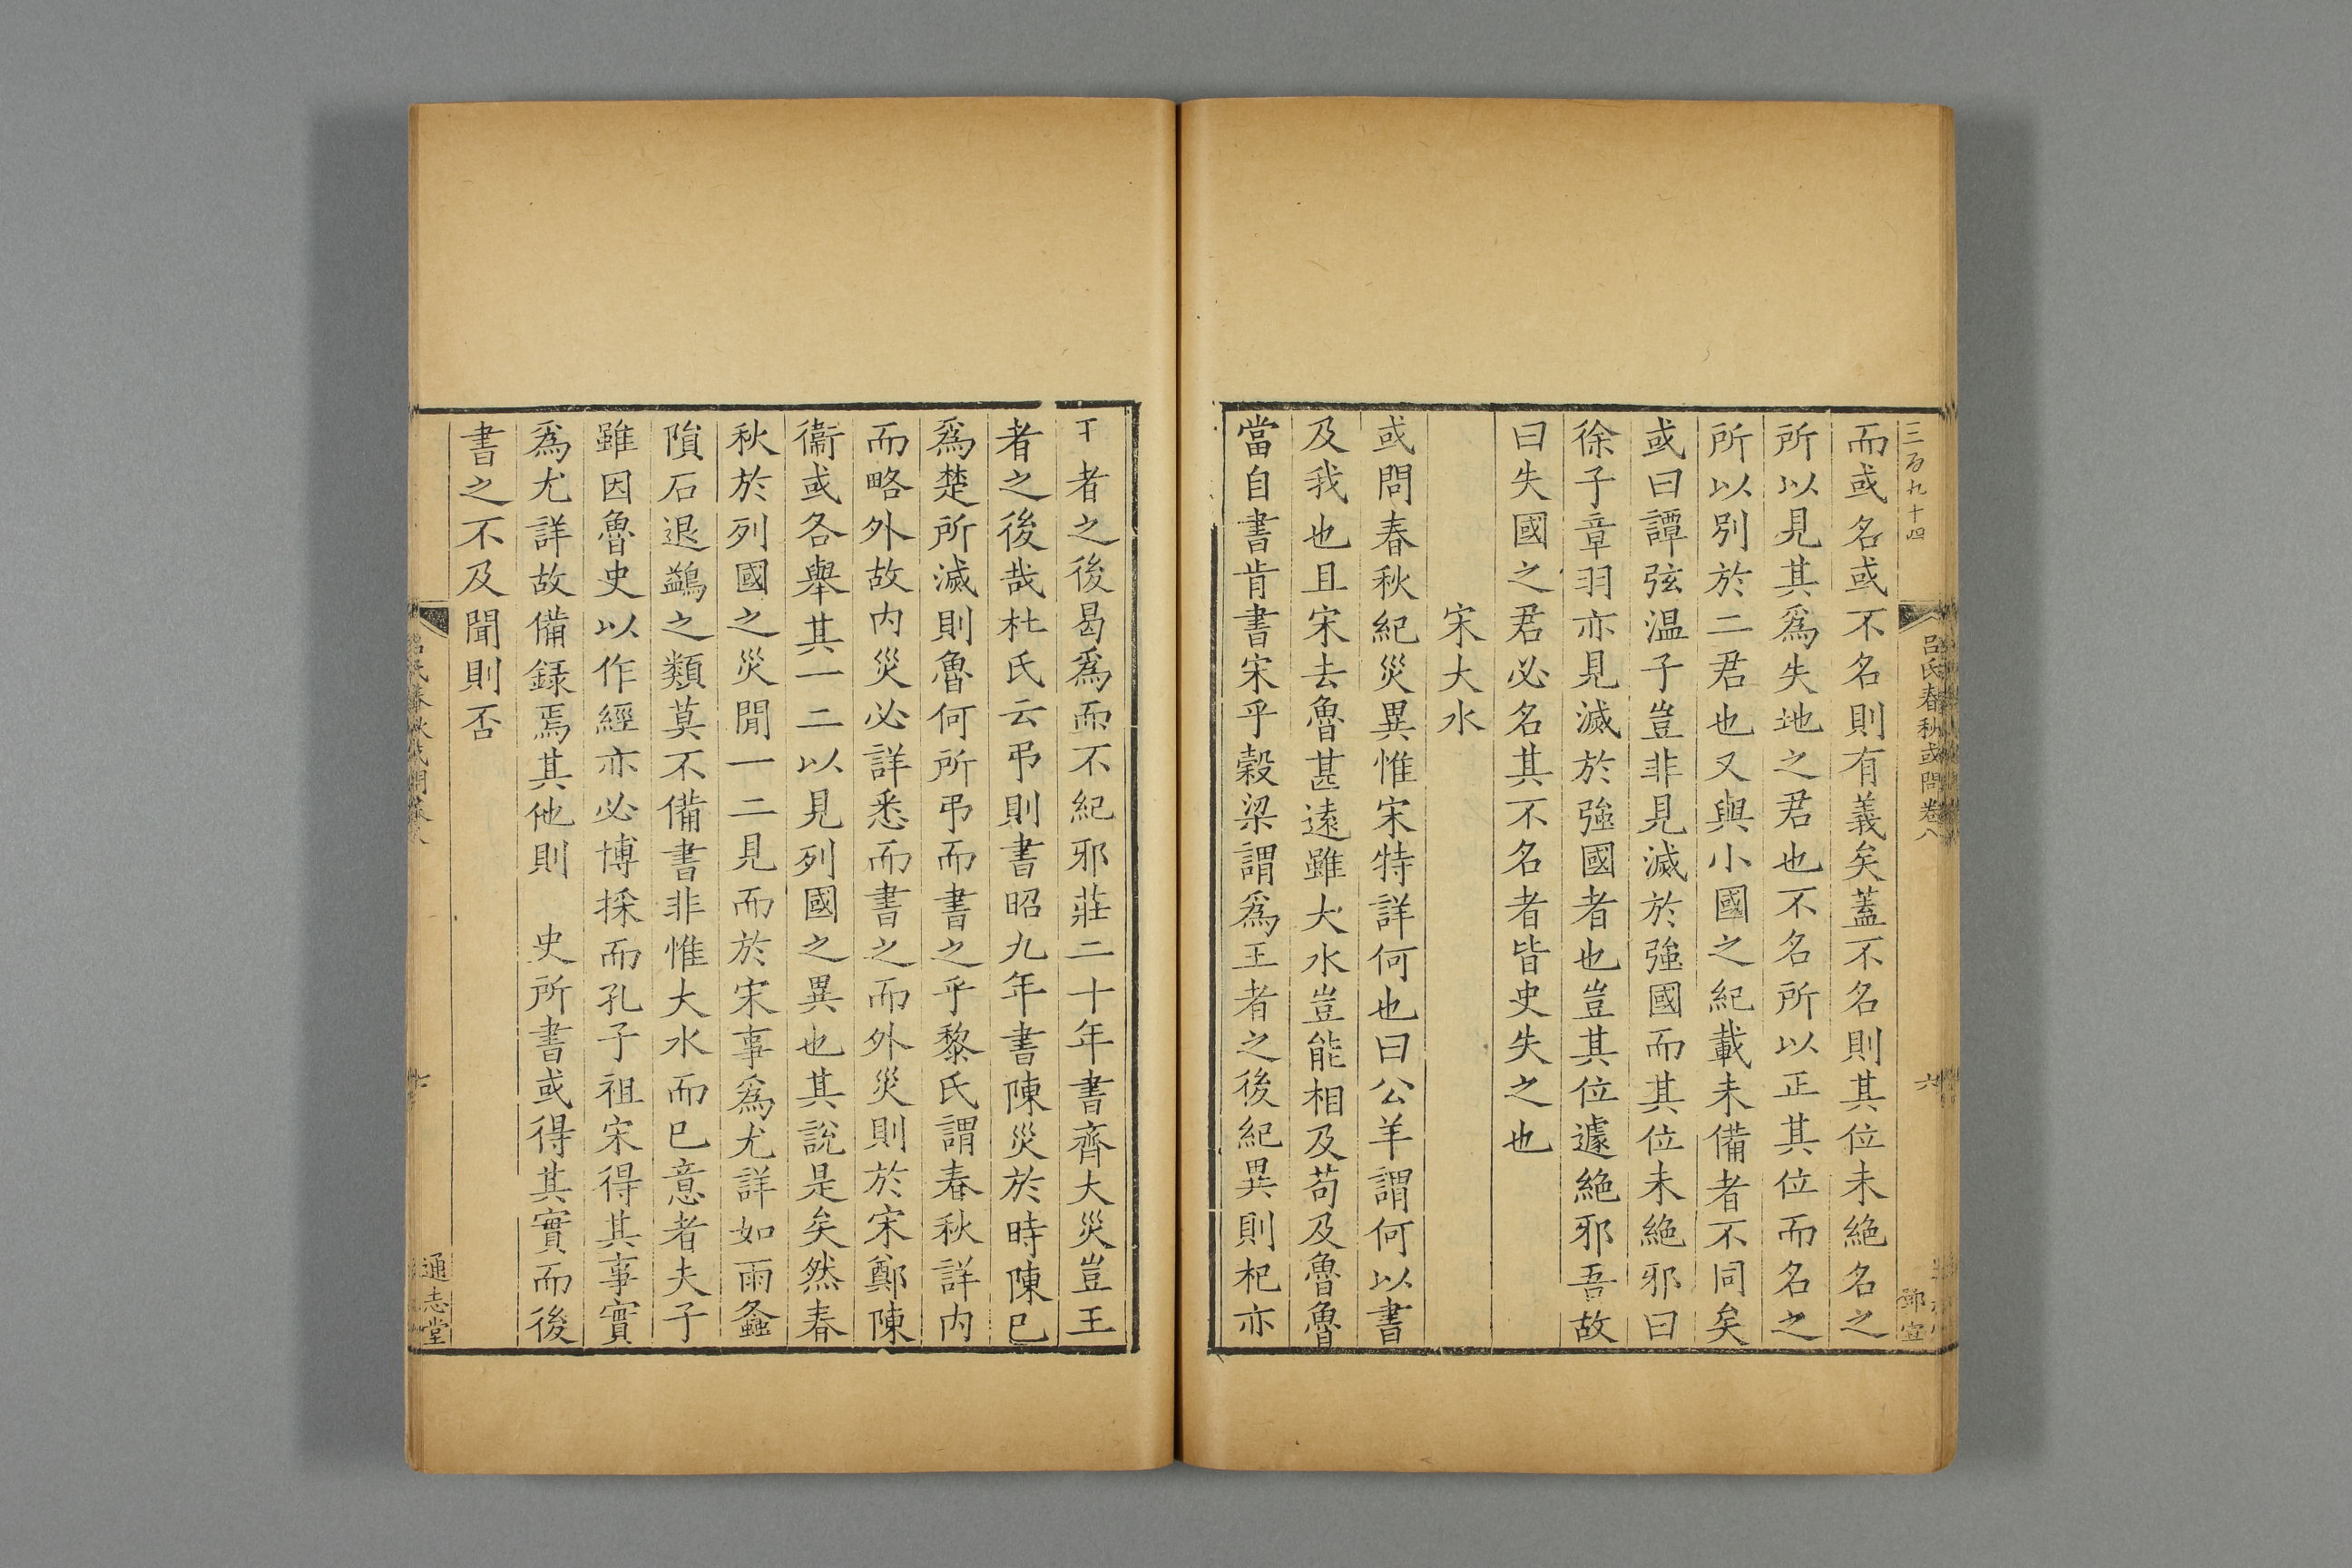 三百九十四
呂氏春秋或問卷八
六
而或名或不名則有義矣蓋不名則其位未絶名之
所以見其爲失地之君也不名所以正其位而名之
所以別於二君也又與小國之紀載未備者不同矣
或曰譚弦温子豈非見滅於強國而其位未絶邪曰
徐子章羽亦見滅於強國者也豈其位遽絶邪吾故
曰失國之君必名其不名者皆史失之也
宋大水
或問春秋紀災異惟宋特詳何也曰公羊謂何以書
及我也且宋去魯甚遠雖大水豈能相及苟及魯魯
當自書肯書宋乎穀梁謂爲王者之後紀異則杞亦
者之後曷爲而不紀邪莊二十年書齊大災豈王
者之後哉杜氏云弔則書昭九年書陳災於時陳巳
爲楚所滅則魯何所弔而書之乎黎氏謂春秋詳内
而略外故内災必詳悉而書之而外災則於宋鄭陳
衞或各舉其一二以見列國之異也其說是矣然春
秋於列國之災閒一二見而於宋事爲尤詳如雨螽
隕石退鷁之類莫不備書非惟大水而巳意者夫子
雖因魯史以作經亦必博採而孔子祖宋得其事實
爲尤詳故備録焉其他則 史所書或得其實而後
書之不及聞則否
通志堂